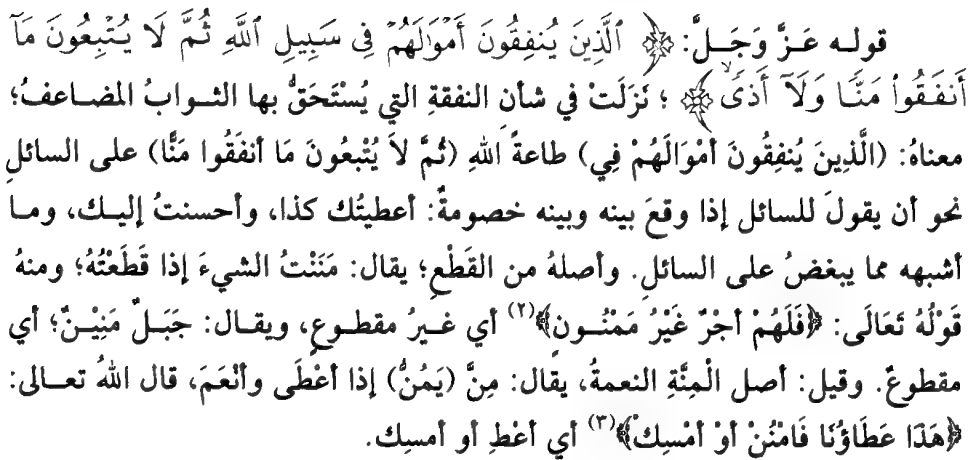 قوله عَزَّ وَجَلَّ: ﴿ ٱلَّذِينَ يُنفِقُونَ أَمۡوَٰلَهُمۡ فِى سَبِيلِ ٱللَّهِ ثُمَّ لَا يُتۡبِعُونَ مَآ
أَنفَقُواْ مَنًّا وَلَآ أَذًى ﴾ ؛ نَزَلَتْ في شأنِ النفقةِ التي يُسْتَحَقُّ بها الثوابُ المضاعفُ؛
معناهُ: (الَّذِينَ يُنفِقُونَ أَمْوَالَهُمْ فِي) طاعةِ اللهِ (ثُمَّ لاَ يُتْبِعُونَ مَا أنفَقُوا مَنًّا) على السائلِ
نحو أن يقولَ للسائل إذا وقعَ بينه وبينه خصومةٌ: أعطيتُك كذا، وأحسنتُ إليك، وما
أشبهه مما يبغضُ على السائلِ. وأصلهُ من القَطْعِ؛ يقال: مَنَنْتُ الشيءَ إذا قَطَعْتُهُ؛ ومنهُ
قَوْلُهُ تَعَالَى: ﴿فَلَهُمْ أَجْرٌ غَيْرُ مَمْنُونٍ﴾(٢) أي غيرُ مقطوعٍ، ويقال: جَبَلٌ مَنِيْنٌ؛ أي
مقطوعٌ. وقيل: أصل الْمِنَّةِ النعمةُ، يقال: مِنَّ (يَمُنُّ) إذا أعْطَى وأنْعَمَ، قال اللهُ تعالى:
﴿هَذَا عَطَاؤُنَا فَامْنُنْ أوْ أمْسِكْ﴾(٣) أي أعْطِ أو أمسِك.